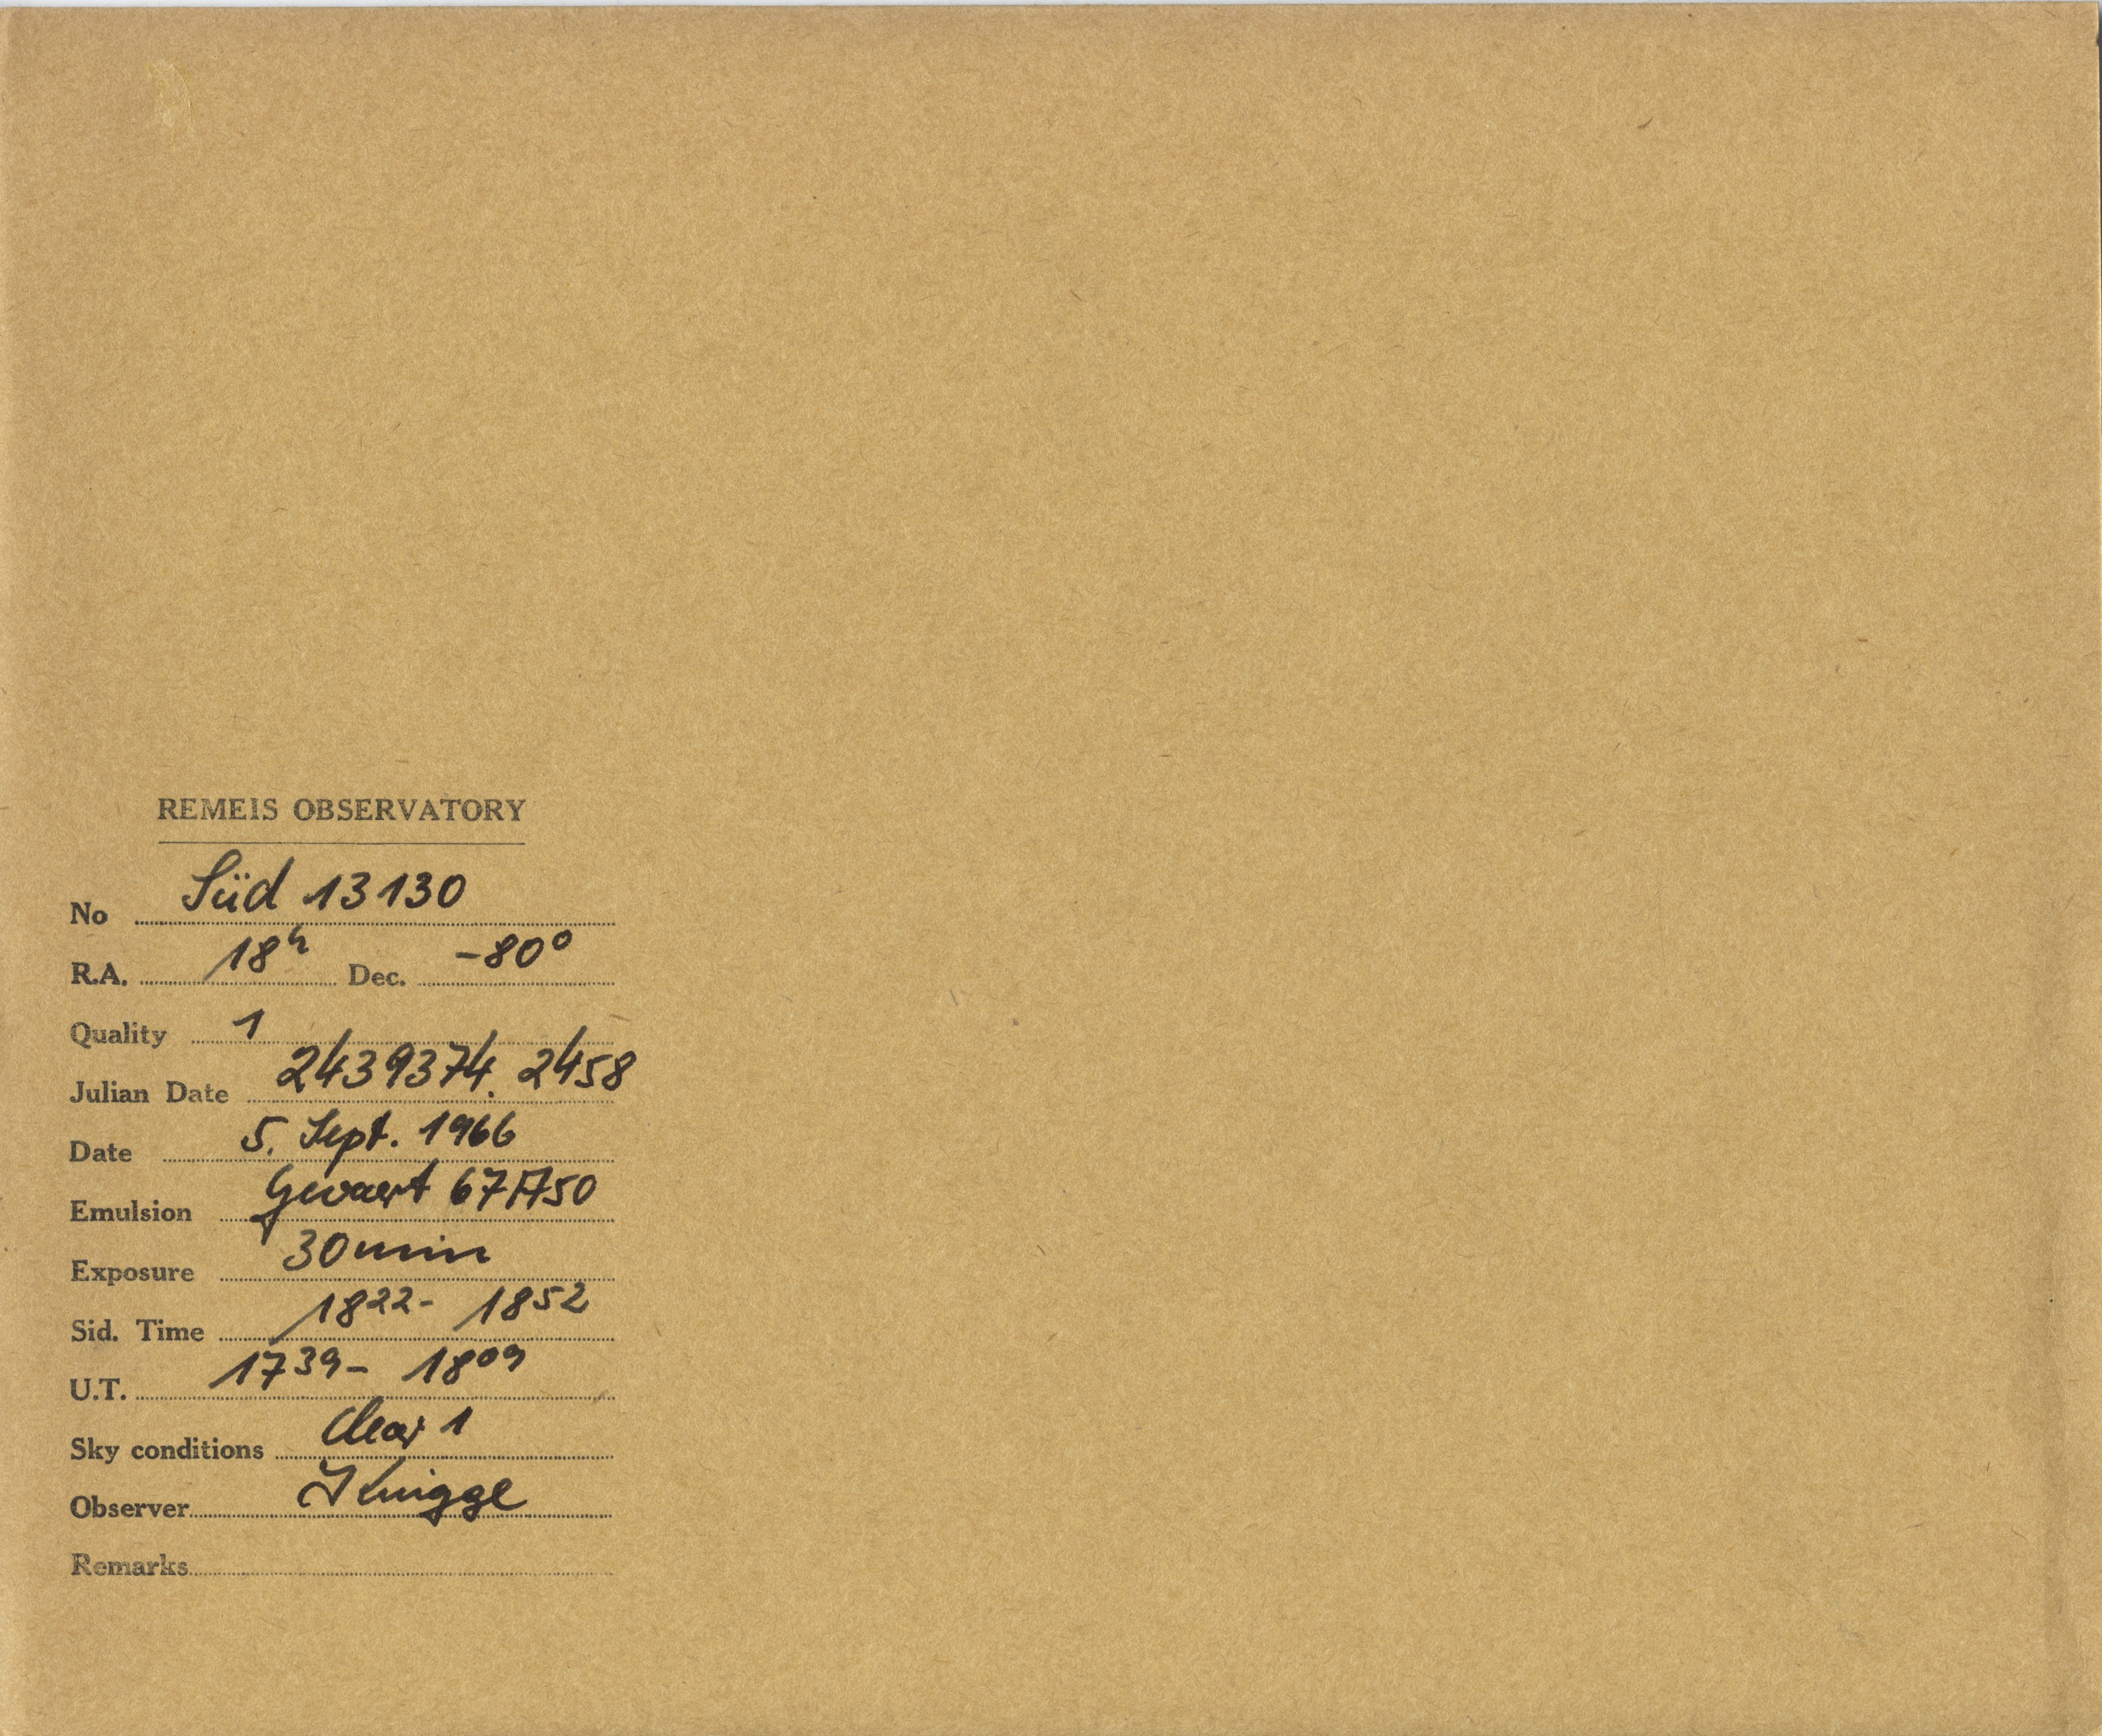 REMEIS OBSERVATORY
No Süd 13130
R.A. 18h Dec. -80°
Quality 1
Julian Date 2439374.2458
Date 5. Sept. 1966
Emulsion Gevaert 67A50
Exposure 30min
Sid. Time 18 22 - 18 52
U.T. 17 39 - 18 09
Sky conditions clear 1
Observer Knigge
Remarks